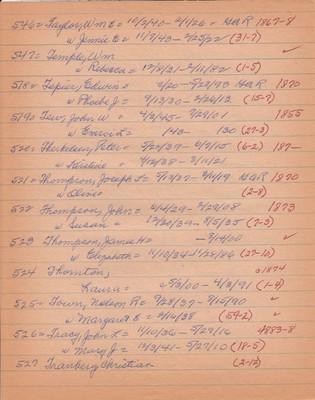 546= Taylor, Wm E = 10/2/40 - 2/1/26 - G.A.R 1867-8
w Jennie E = 11/7/43 - 2/25/22 (31-7)
547= Temple, Wm
w Rebecca = 12/8/21 - 2/11/82 (1-5)
518= Tepier, Edwin = 4/20 - 9/27/93 G.A.R 1870
w Phoebe J = 9/13/30 - 2/26/12 (15-7)
519= Teu, John W = 4/2/45 - 7/29/01 1855
w = 143 130 (27-3)
520= Peter = 5/27/39 - 2/7/15 (6-2) 187-
w = 4/12/38 - 3/11/21
521= Thompson, Joseph L = 7/13/37 - 3/16/19 G.A.R 1870
w Olive (2-8)
522 Thompson, John = 10/14/29 - 2/29/08 1873
w Susan = 12/20/39 - 5/5/35 (7-3)
523 Thompson, James H = - 3/14/00
w Elizabeth = 11/10/34 - 1/29/86 (27-10)
524 Thornton, 1874
Laura = 5/3/00 - 4/3/91 (1-4)
525= Town, Nelson R = 3/28/37 - 9/15/90
w Margaret E = 2/14/38 (54-2)
526= Tracy, John L = 1/10/36 - 5/29/16 4883-8
w Mary J = 12/3/41 - 5/27/20 (18-5)
527 Tranberg Christian (2-12)